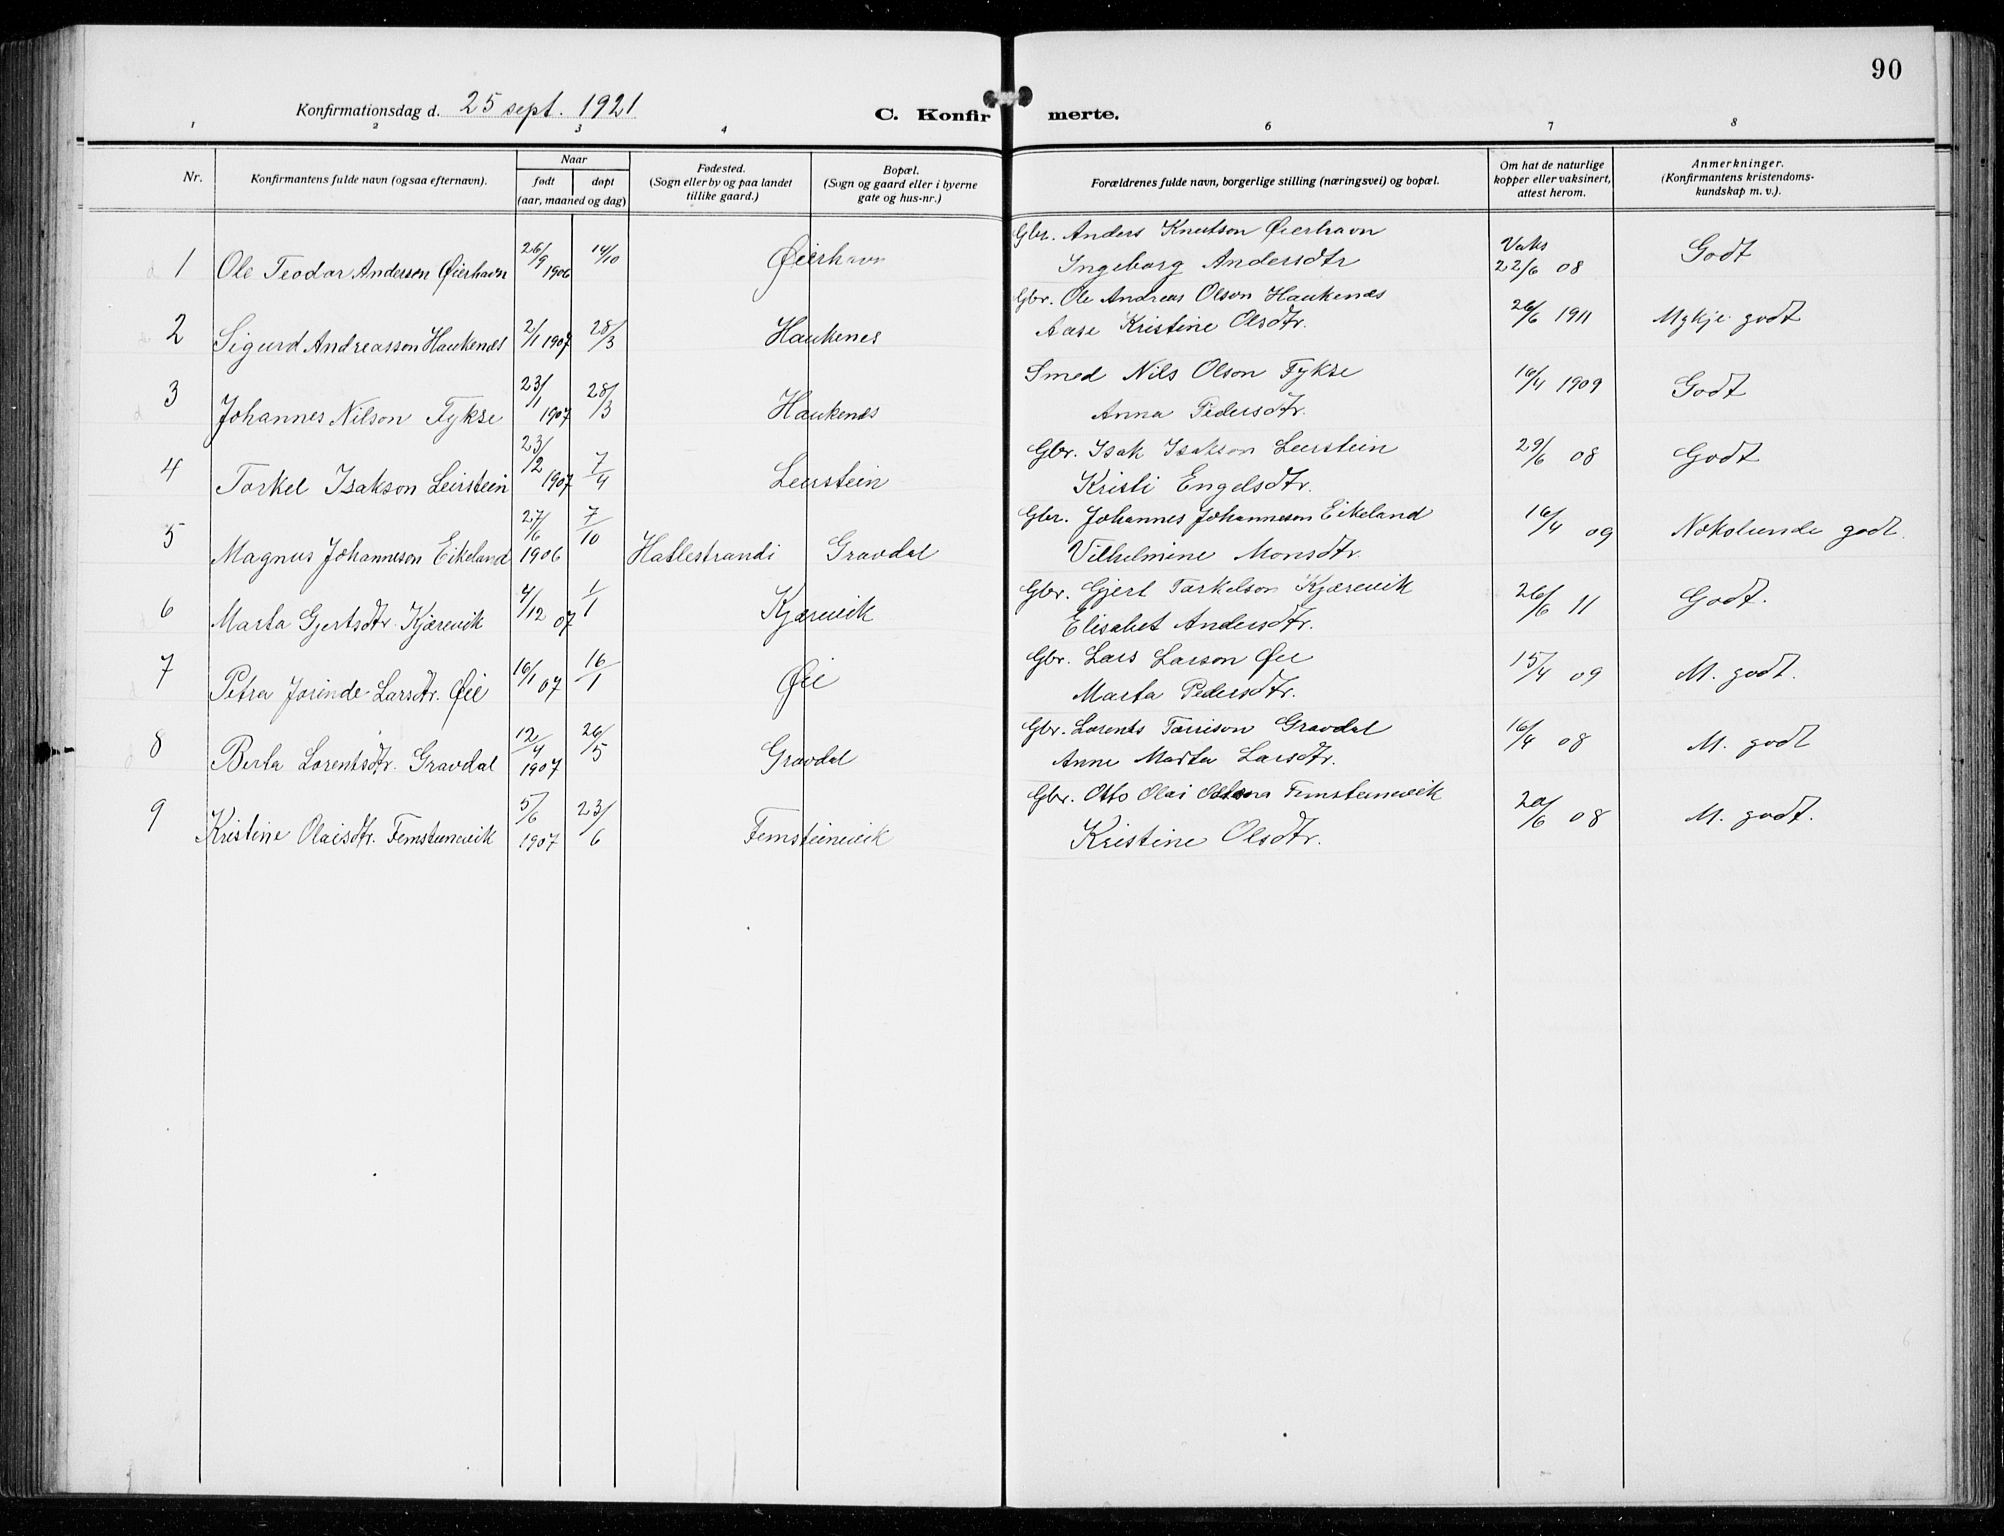 90
Konfirmationsdag d. 25 sept. 1921
C. Konfirmerte.
1 2 3 4 6 7 8
Nr.
Konfirmantens fulde navn (ogsaa efternavn).
Naar
født døpt
(aar, maaned og dag)
Fødested.
(Sogn eller by og paa landet
tillike gaard.)
Bopæl.
(Sogn og gaard eller i byerne
gate og hus-nr.)
Forældrenes fulde navn, borgerlige stilling (næringsvei) og bopæl.
Om hat de naturlige
kopper eller vaksinert,
attest herom.
Anmerkninger.
(Konfirmantens kristendoms-
kundskap m. v.).
1 Ole Teodor Andersen Øierhavn 26/9 1906 14/10 Øierhavn
Gbr. Anders Knutson Øierhavn
Ingeborg Andersdtr
Vaks
22/6 08 Godt
2 Sigurd Andreasson Haukenæs 2/1 1907 28/3 Haukenes
Gbr. Ole Andreas Olson Haukenæs
Aase Kristine Olsdtr. 26/6 1911 Mykje godt
3 Johannes Nilson Tykse 23/1 1907 28/3 Haukenæs
Smed Nils Olson Tykse
Anna Pedersdtr. 16/4 1909 Godt
4 Torkel Isakson Leirstein 23/2 1907 7/4 Leirstein
Gbr. Isak Isakson Leirstein
Kristi Engelsdtr. 29/6 08 Godt
5 Magnus Johanneson Eikeland 27/6 1906 7/10 Hatlestrandi Gravdal
Gbr. Johannes Johanneson Eikeland
Vilhelmine Monsdtr. 16/4 09 Nokolunde godt.
6 Marta Gjertsdtr. Kjærevik 4/12 07 1/1 Kjærevik
Gbr. Gjert Torkelson Kjærevik
Elisabet Andersdtr. 26/6 11 Godt.
7 Petra Jorinde Larsdtr. Øie 10/1 07 16/1 Øie
Gbr. Lars Larson Øie
Marta Pedersdtr. 15/4 09 M. godt.
8 Berta Lorentsdtr. Gravdal 12/4 1907 26/5 Gravdal
Gbr. Lorents Torrison Gravdal
Anne Marta Larsdtr. 16/4 08 M. godt
9 Kristine Olaisdtr. Femsteinevik 5/6 1907 23/6 Femsteinevik
Gbr. Otto Olai Femsteinevik
Kristine Olsdtr. 20/6 08 M. godt.